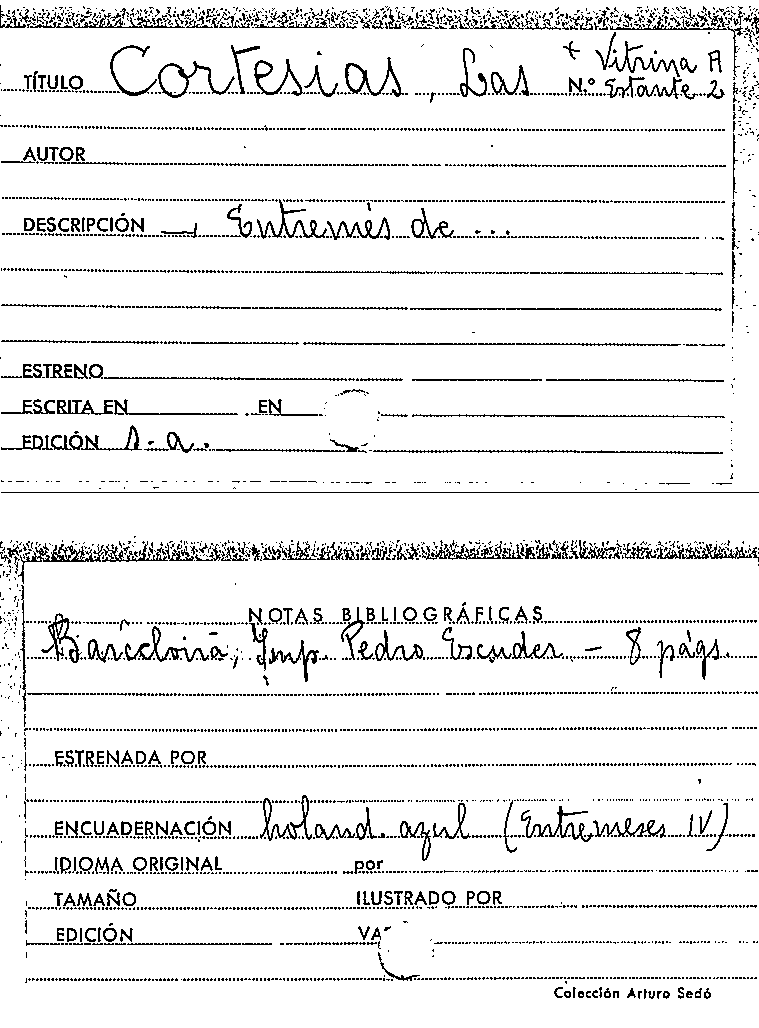 TÍTULO Cortesias, Las + Vitrina A
N.º Estante 2
AUTOR
DESCRIPCIÓN — Entremés de ...
ESTRENO
ESCRITA EN EN
EDICIÓN s. a.
NOTAS BIBLIOGRÁFICAS
Barcelona, Imp. Pedro Escuder — 8 págs.
ESTRENADA POR
ENCUADERNACIÓN holand. azul (Entremeses IV)
IDIOMA ORIGINAL por
TAMAÑO ILUSTRADO POR
EDICIÓN
Colección Arturo Sedó